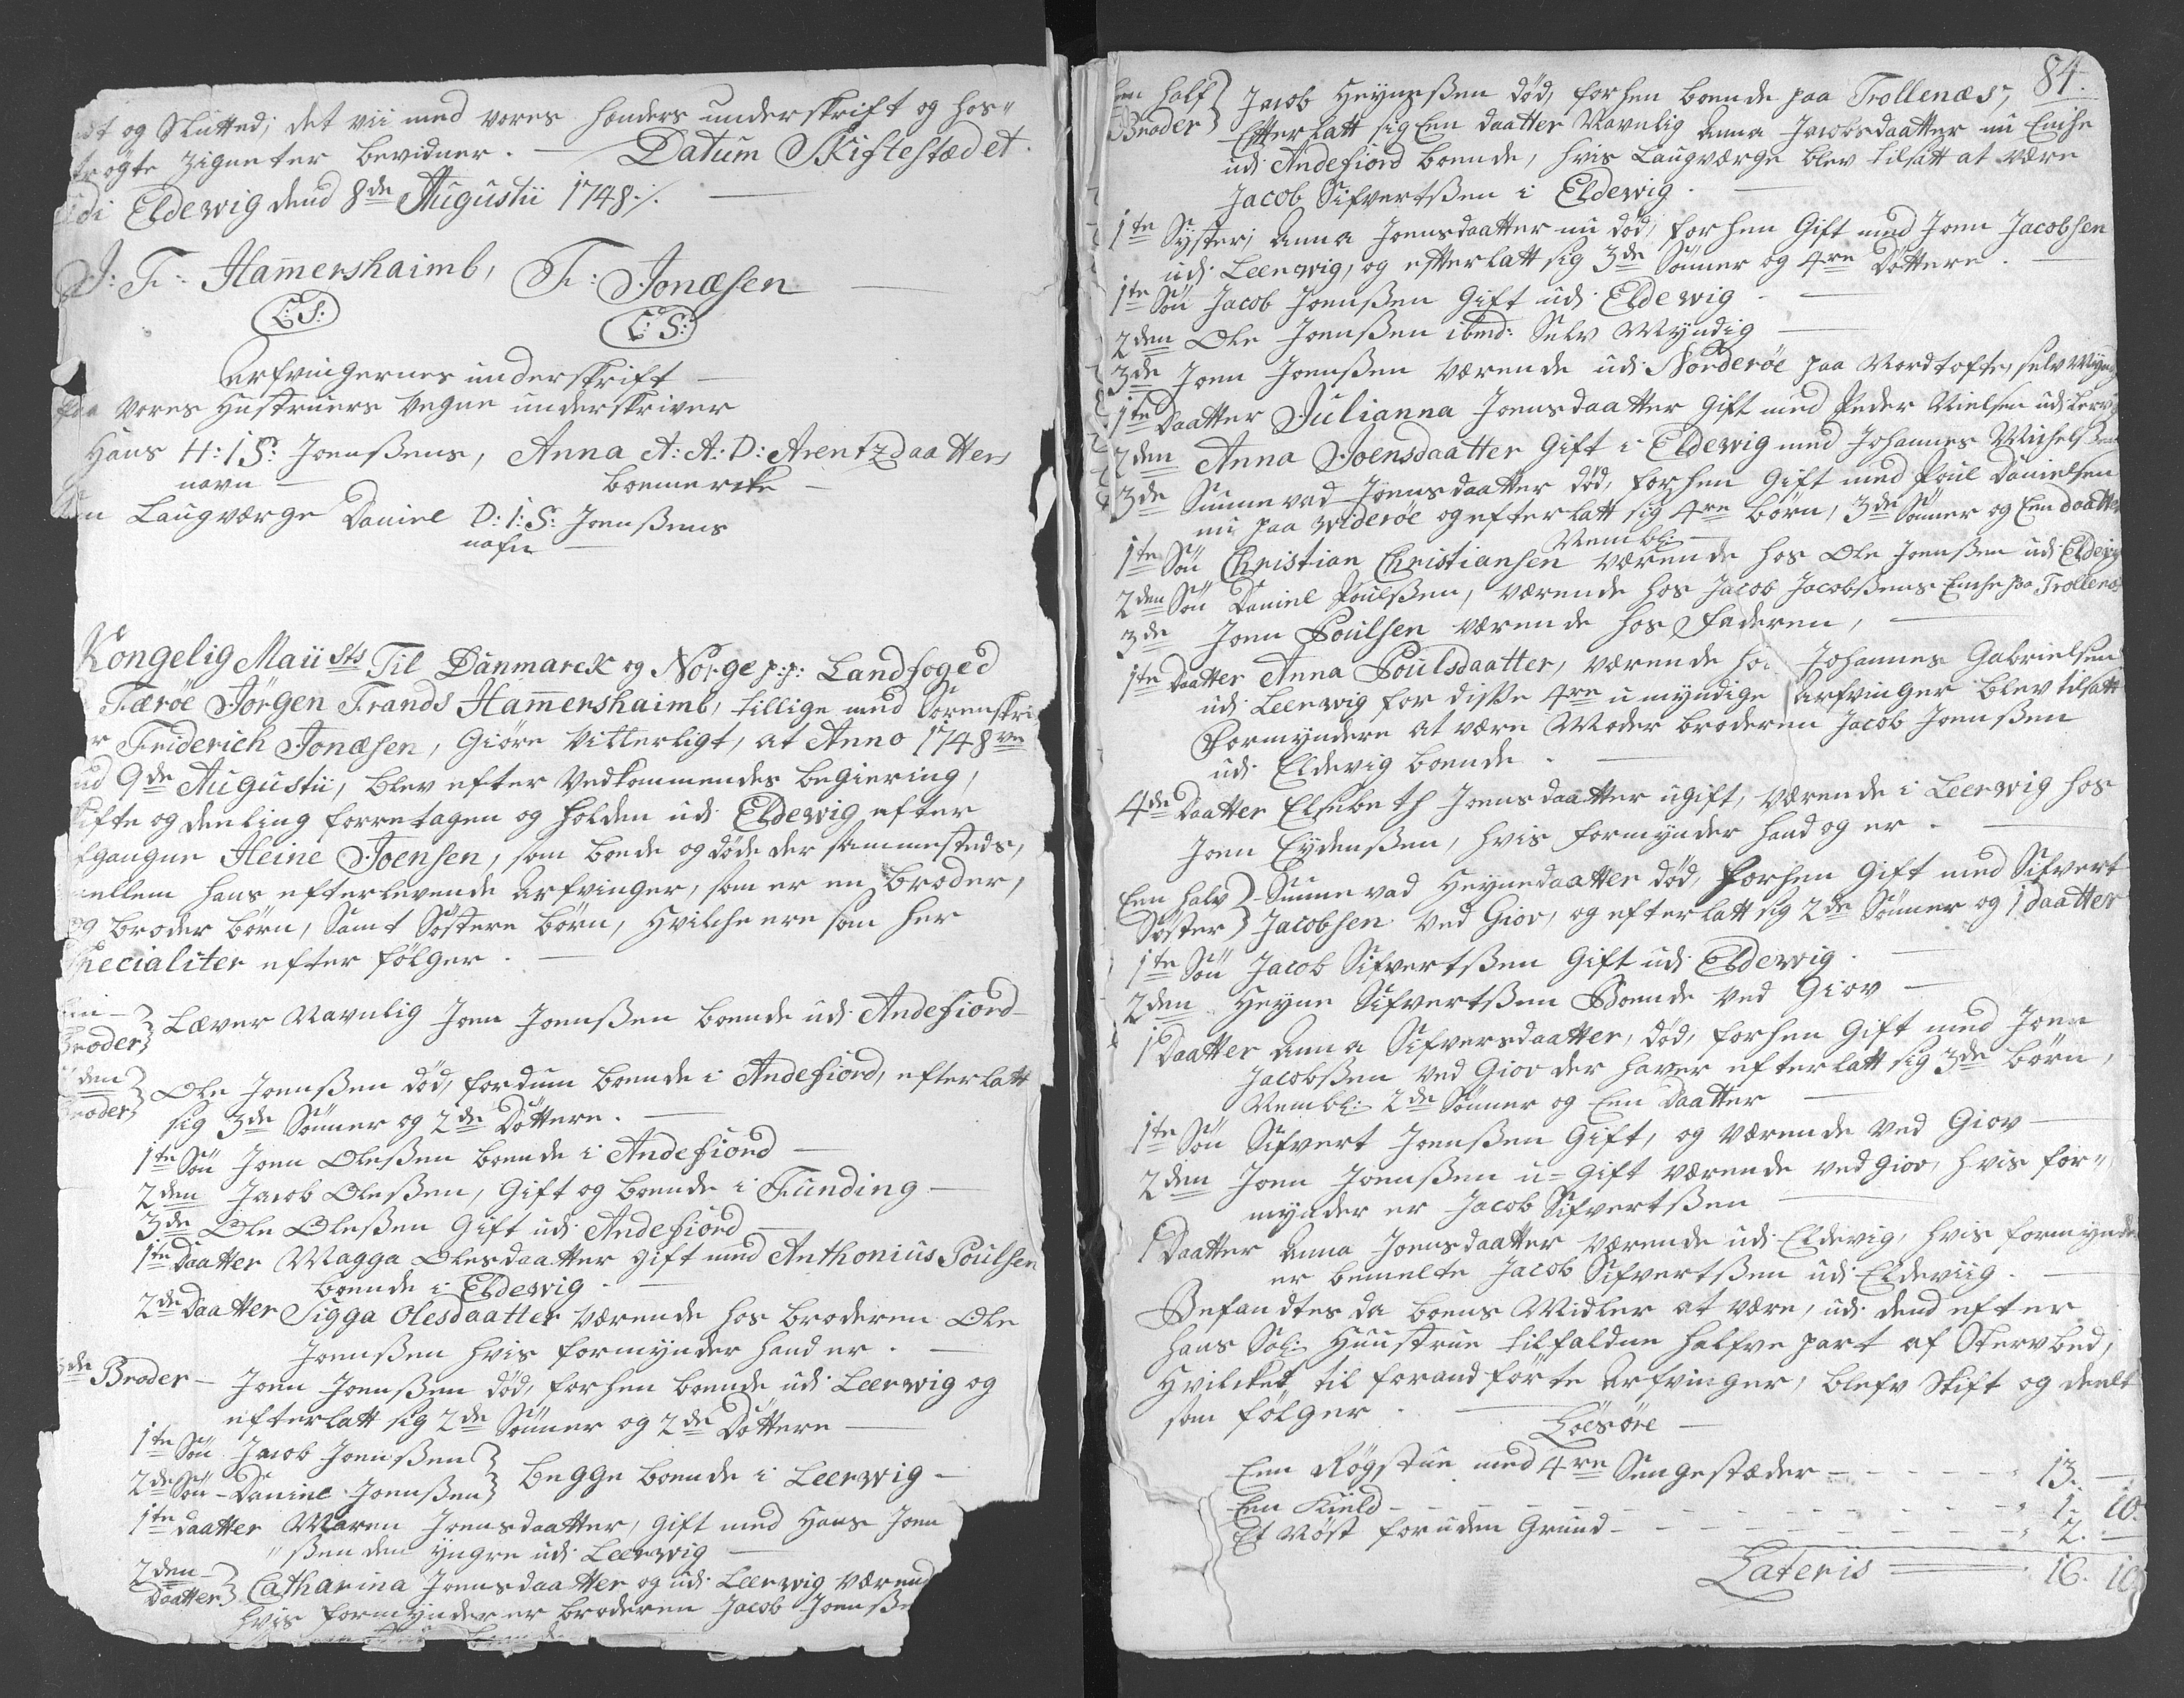 og Sluttet, det vii med vores hænders underskrift og hos"
trögte Zigneter bevidner. — Datum Skiftestædet.
udi Eldewig dend 8de Augustii 1748 ./.
J: F: Hamershaimb, F: Jonæsen
L: S: L: S:
Arfvingernes underskrift —
paa vores Hustruers vegne underskriver
Hans H: I S: Joensßens, Anna A: A: D: Arentzdaatters
navn — boemercke —
Laugværge Daniel D: I: S: Joensßens
nafn
Kongelig Maiists Til Danmarck og Norge p: p: Landfoged
Færöe Jørgen Frands Hamershaimb, tillige med Sorenskri
Friderich Jonæsen, Giöre Vitterligt, at Anno 1748ve
9de Augustii, blev efter Vedkommendes begiering,
og deeling forretagen og holden udi Eldewig efter
Heine Joensen, som boede og döde der sammesteds,
mellem hans efterlevende Arfvinger, som er en broder,
og broder börn, Samt Söstere börn, Hvilche ere som her
Specialiter efter fölger. —
Broder Læver Navnlig Joen Joensßen boende udi Andefiord
den
Broder Ole Joensßen död, fordum boende i Andefiord, efterlatt
sig 3de Sönner og 2de Döttere. —
1te Sön Joen Olesßen boende i Andefiord —
2den Jacob Olesßen, Gift og boende i Funding —
3de Ole Olesßen Gift udi Andefiord —
1te Daatter Magga Olesdaatter gift med Anthonius Poulsen
boende i Eldewig. —
2de Daatter Sigga Olesdaatter værende hos broderen Ole
Joensßen hvis formynder hand er. —
3de Broder — Joen Joensßen död, forhen boende udi Leerwig og
efterlatt sig 2de Sönner og 2de Döttere —
1te Sön Jacob Joensßen
2de Sön — Daniel Joensßen begge boende i Leerwig —
1te daatter Maren Joensdaatter, gift med Hans Joen
" sßen den yngre udi Leerwig —
2den —
Daatter Catharina Joensdaatter og udi Leerwig værend
hvis formynder er broderen Jacob Joensße
84.
half
Broder Jacob Heynesßen död, forhen boende paa Trollenæs,
Efterlatt sig Een daatter Navnlig Anna Jacobsdaatter nu Enche
udi Andefiord boende, hvis Laugværge blev tilsatt at være
Jacob Sifvertsßen i Eldewig. —
1te Syster, Anna Joensdaatter nu död, forhen Gift med Joen Jacobsen
udi Leerwig, og efterlatt sig 3de Sönner og 4re Döttere. —
1te Sön Jacob Joensßen Gift udi Eldewig —
2den Ole Joensßen ibmd: Selv Myndig —
3de Joen Joensßen Værende udi Norderöe paa Nordtofte, selv Mynd
1te Daatter Julianna Joensdaatter Gift med Peder Nielsen udi Lerv
2den Anna Joensdaatter Gift i Eldewig med Johannes Michelsßen
3de Sunnevad Joensdaatter död, forhen Gift med Poul Danielsen
nu paa Widerøe og efterlatt sig 4re börn, 3de Sönner og Een daatter
Nembl: —
1te Sön Christian Christiansen værende hos Ole Joensßen udi Eldevig
2den Sön Daniel Poulsßen, værende hos Jacob Jacobsßens Enche paa Trollenæs
3de Joen Poulsen værende hos Faderen, —
1te Daatter Anna Poulsdaatter, værende hos Johannes Gabrielsen
udi Leerwig for disse 4re umyndige Arfvinger blev tilsatt
Formyndere at være Moder broderen Jacob Joensßen
udi Eldevig boende. —
4de Daatter Elsebeth Joensdaatter ugift, værende i Leerwig hos
Joen Eydensßen, hvis formynder hand og er. —
Een halv Sunnevad Heynedaatter död, forhen Gift med Sifvert
Söster Jacobsen ved Giov, og efterlatt sig 2de Sönner og 1 daatter
1te Sön Jacob Sifvertsßen Gift udi Eldewig. —
2den Heyne Sifvertsßen Boende ved Giov —
1 Daatter Anna Sifversdaatter, död, forhen Gift med Joen
Jacobsßen ved Giov der haver efterlatt sig 3de börn,
Nembl: 2de Sönner og Een Daatter —
1te Sön Sifvert Joensßen Gift, og værende ved Giov —
2den Joen Joensßen u=gift værende ved Giov, hvis for"
mynder er Jacob Sifvertsßen —
1 Daatter Anna Joensdaatter værende udi Eldevig, hvis formynde
er bemelte Jacob Sifvertsßen udi Eldeviig. —
Befandtes da boens Midler at være, udi dend efter
hans Sal: Huustrue tilfaldne halfve part af Stervbed,
Hvilcket til forand förte Arfvinger, blefv Skift og deelt
som fölger. — Löesöre —
Een Rögstue med 4re Sengestæder — 13. —
Een Kield — 1. 10.
Et Nöst foruden Grund — 2. —
Lateris 16. 10